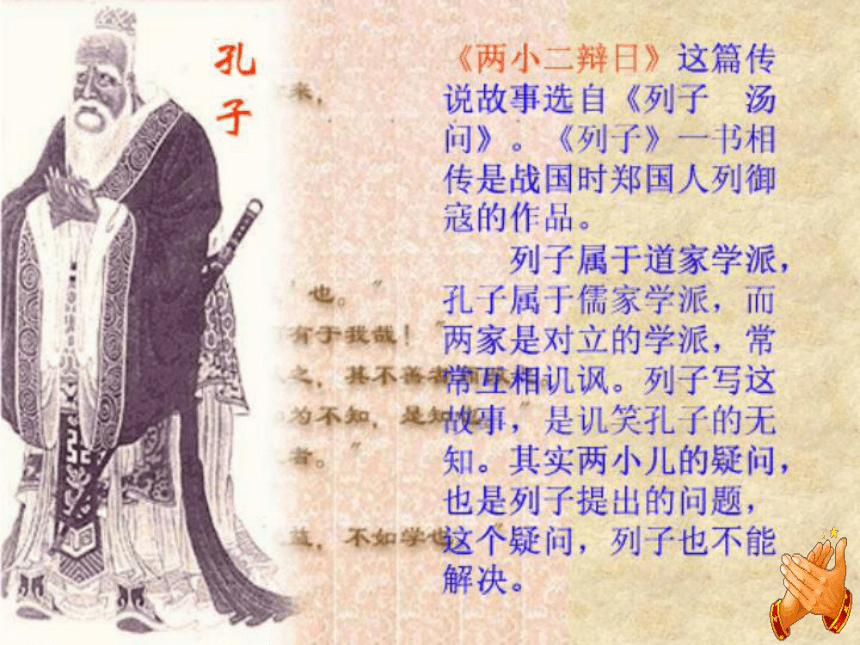 孔
子
《两小二辩日》这篇传
说故事选自《列子　汤
问》。《列子》一书相
传是战国时郑国人列御
寇的作品。
列子属于道家学派，
孔子属于儒家学派，而
两家是对立的学派，常
常互相讥讽。列子写这
故事，是讥笑孔子的无
知。其实两小儿的疑问，
也是列子提出的问题，
这个疑问，列子也不能
解决。
来，
也。"
有于我哉！"
之，其不善者
为不知，是知
者。"
益，不如学也